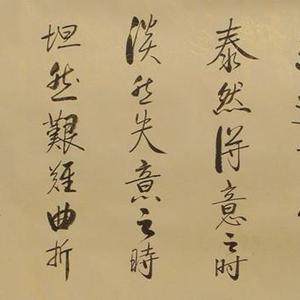 泰然得意之时
淡然失意之時
坦然艱難曲折